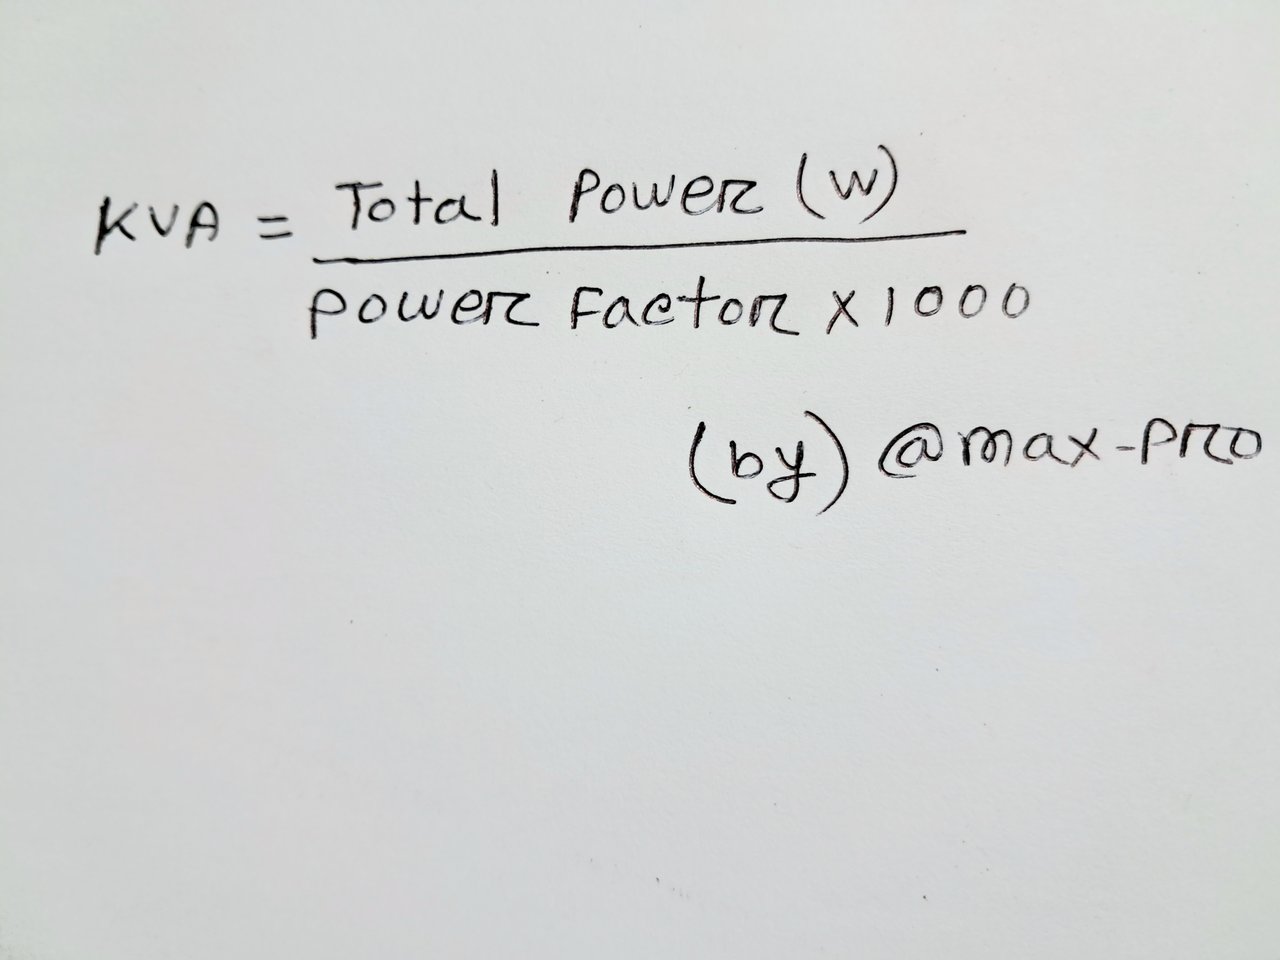 KVA = Total Power (W)
Power Factor x 1000
(by) @max-pro